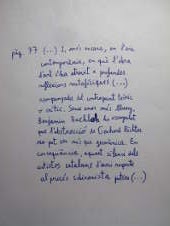 pàg. 77 (...) I, més encara, en l'era
contemporània, en què l'obra
d'art s'ha atrevit a profundes
reflexions metafísiques (...)
contingent teòric
i crític. Sense anar més lluny,
Benjamin Buchloh ha comentat
que l'abstracció de Gerhard Richter
no pot ser més que
conseqüència, aquest dels
artistes catalans d'avui respecte
al procés (...)